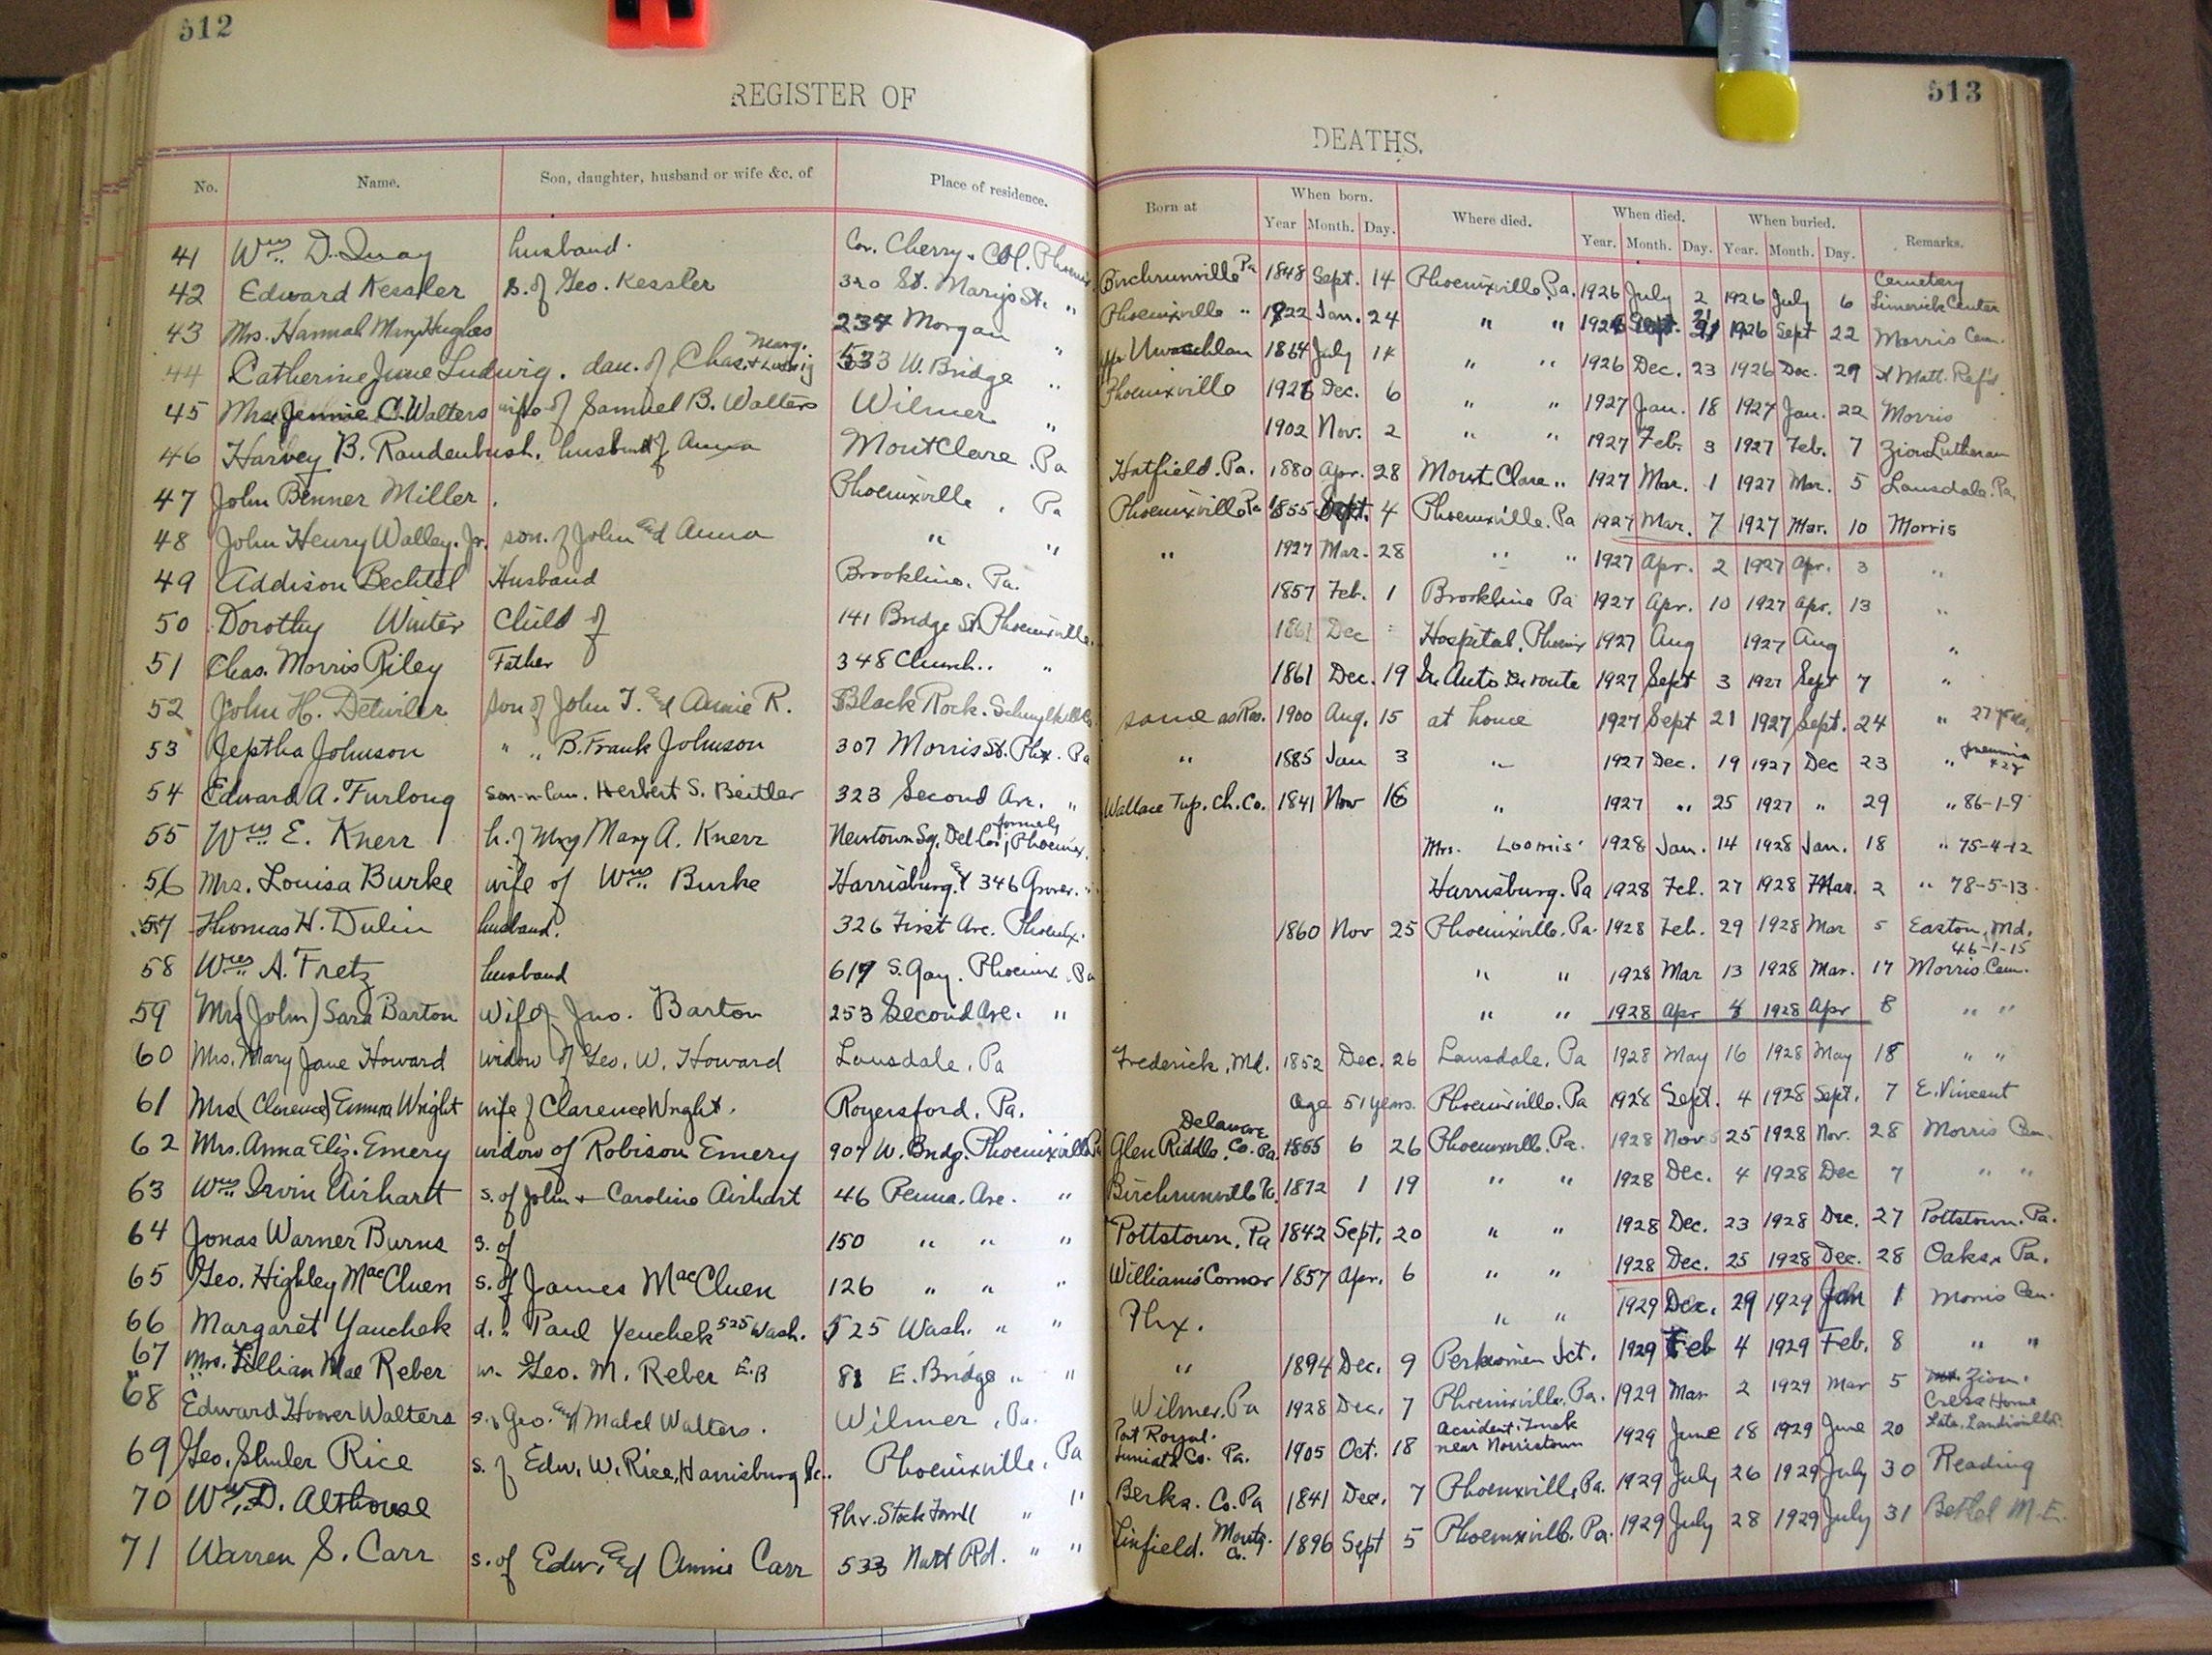 512
REGISTER OF
No. Name. Son, daughter, husband or wife &c. of Place of residence.
41 Wm. D. Quay husband. Cor. Cherry
42 Edward Kessler s. of Geo. Kessler 320 St. Marys St. "
43 Mrs. Hannah Mary Hughes 237 Morgan "
44 Catherine June Ludwig. dau. of Chas. + Marg. Ludwig 533 W. Bridge "
45 Mrs. Jennie C. Walters wife of Samuel B. Walters Wilmer "
46 Harvey B. Raudenbush. husband of Anna Mont Clare. Pa
47 John Benner Miller. Phoenixville, Pa
48 John Henry Walley. Jr. son. of John and Anna " "
49 Addison Bechtel Husband Brookline. Pa.
50 Dorothy Winter Child of 141 Bridge St. Phoenixville.
51 Chas. Morris Riley Father 348 Church.. "
52 John H. Detwiler son of John T. and Annie R. Black Rock.
53 Jeptha Johnson " " B. Frank Johnson 307 Morris St. Phx. Pa
54 Edward A. Furlong Son-n-law. Herbert S. Beitler 323 Second Ave. "
55 Wm. E. Knerr h. of Mary A. Knerr Newtown Sq. Del Co. formerly Phoenix.
56 Mrs. Louisa Burke wife of Wm. Burke Harrisburg. & 346 Grover. "
57 Thomas H. Dulin husband. 326 First Ave. Phoenx.
58 Wm. A. Fretz husband 617 S. Gay. Phoenix. Pa
59 Mrs (John) Sara Barton wife of Jno. Barton 253 Second Ave. "
60 Mrs. Mary Jane Howard widow of Geo. W. Howard Lansdale, Pa
61 Mrs (Clarence) Emma Wright wife of Clarence Wright. Royersford, Pa.
62 Mrs. Anna Eliz. Emery widow of Robison Emery 907 W. Bridg. Phoenixville Pa
63 Wm. Irvin Airhart s. of John + Caroline Airhart 46 Penna. Ave. "
64 Jonas Warner Burns s. of 150 " " "
65 Geo. Highley MacCluen s. of James MacCluen 126 " " "
66 Margaret Yauchek d. " Paul Yenchek 525 Wash. 525 Wash. " "
67 Mrs. Lillian Mae Reber w. Geo. M. Reber E.B 81 E. Bridge " "
68 Edward Hoover Walters s. of Geo. and Mabel Walters. Wilmer, Pa.
69 Geo. Shuler Rice s. of Edw. W. Rice, Harrisburg Pa. Phoenixville, Pa
70 Wm. D. Althouse Phx. " "
71 Warren S. Carr s. of Edw. and Annie Carr 533 Nutt Rd. " "
513
DEATHS.
Born at When born. Year Month. Day. Where died. When died. Year. Month. Day. When buried. Year. Month. Day. Remarks.
Birchrunville Pa 1848 Sept. 14 Phoenixville, Pa. 1926 July 2 1926 July 6 Cemetery Limerick Center
Phoenixville " 1922 Jan. 24 " " 1926 Sept. 21 1926 Sept 22 Morris Cem.
Uwchlan 1864 July 14 " " 1926 Dec. 23 1926 Dec. 29 St Matt. Ref'd
Phoenixville 1926 Dec. 6 " " 1927 Jan. 18 1927 Jan. 22 Morris
1902 Nov. 2 " " 1927 Feb. 3 1927 Feb. 7 Zion Lutheran
Hatfield. Pa. 1880 Apr. 28 Mont Clare " 1927 Mar. 1 1927 Mar. 5 Lansdale. Pa.
Phoenixville Pa 1855 Sept. 4 Phoenixville. Pa 1927 Mar. 7 1927 Mar. 10 Morris
" 1927 Mar. 28 " " 1927 Apr. 2 1927 Apr. 3 "
1857 Feb. 1 Brookline Pa 1927 Apr. 10 1927 Apr. 13 "
1861 Dec Hospital, Phoenix 1927 Aug 1927 Aug "
1861 Dec. 19 In Auto En route 1927 Sept 3 1927 Sept 7 "
same as Res. 1900 Aug. 15 at home 1927 Sept 21 1927 Sept. 24 "
" 1885 Jan 3 " 1927 Dec. 19 1927 Dec 23 " pneumonia
Wallace Twp. Ch. Co. 1841 Nov 16 " 1927 " 25 1927 " 29 " 86-1-9
Mrs. Loomis' 1928 Jan. 14 1928 Jan. 18 " 75-4-12
Harrisburg. Pa 1928 Feb. 27 1928 Mar. 2 " 78-5-13
1860 Nov 25 Phoenixville. Pa. 1928 Feb. 29 1928 Mar 5 Easton, Md.
46-1-15
" " 1928 Mar 13 1928 Mar. 17 Morris Cem.
" " 1928 Apr 4 1928 Apr 8 " "
Frederick, Md. 1852 Dec. 26 Lansdale, Pa 1928 May 16 1928 May 18 " "
age 51 years. Phoenixville. Pa 1928 Sept. 4 1928 Sept. 7 E. Vincent
Glen Riddle, Delaware Co. Pa. 1855 6 26 Phoenixvill. Pa. 1928 Nov 25 1928 Nov. 28 Morris Cem.
Birchrunville Pa. 1872 1 19 " " 1928 Dec. 4 1928 Dec 7 " "
Pottstown, Pa 1842 Sept. 20 " " 1928 Dec. 23 1928 Dec. 27 Pottstown. Pa.
Williams' Corner 1857 Apr. 6 " " 1928 Dec. 25 1928 Dec. 28 Oaks, Pa.
Phx. " " 1929 Dec. 29 1929 Jan 1 Morris Cem.
" 1894 Dec. 9 Perkiomen Jct. 1929 Feb 4 1929 Feb. 8 " "
Wilmer, Pa 1928 Dec. 7 Phoenixville, Pa. 1929 Mar 2 1929 Mar 5 Zion.
Port Royal. Juniata Co. Pa. 1905 Oct. 18 Accident. Truck near Norristown 1929 June 18 1929 June 20
Berks. Co. Pa 1841 Dec. 7 Phoenxvill, Pa. 1929 July 26 1929 July 30 Reading
Linfield. Montg. Co. 1896 Sept 5 Phoenixvill. Pa. 1929 July 28 1929 July 31 Bethel M. E.